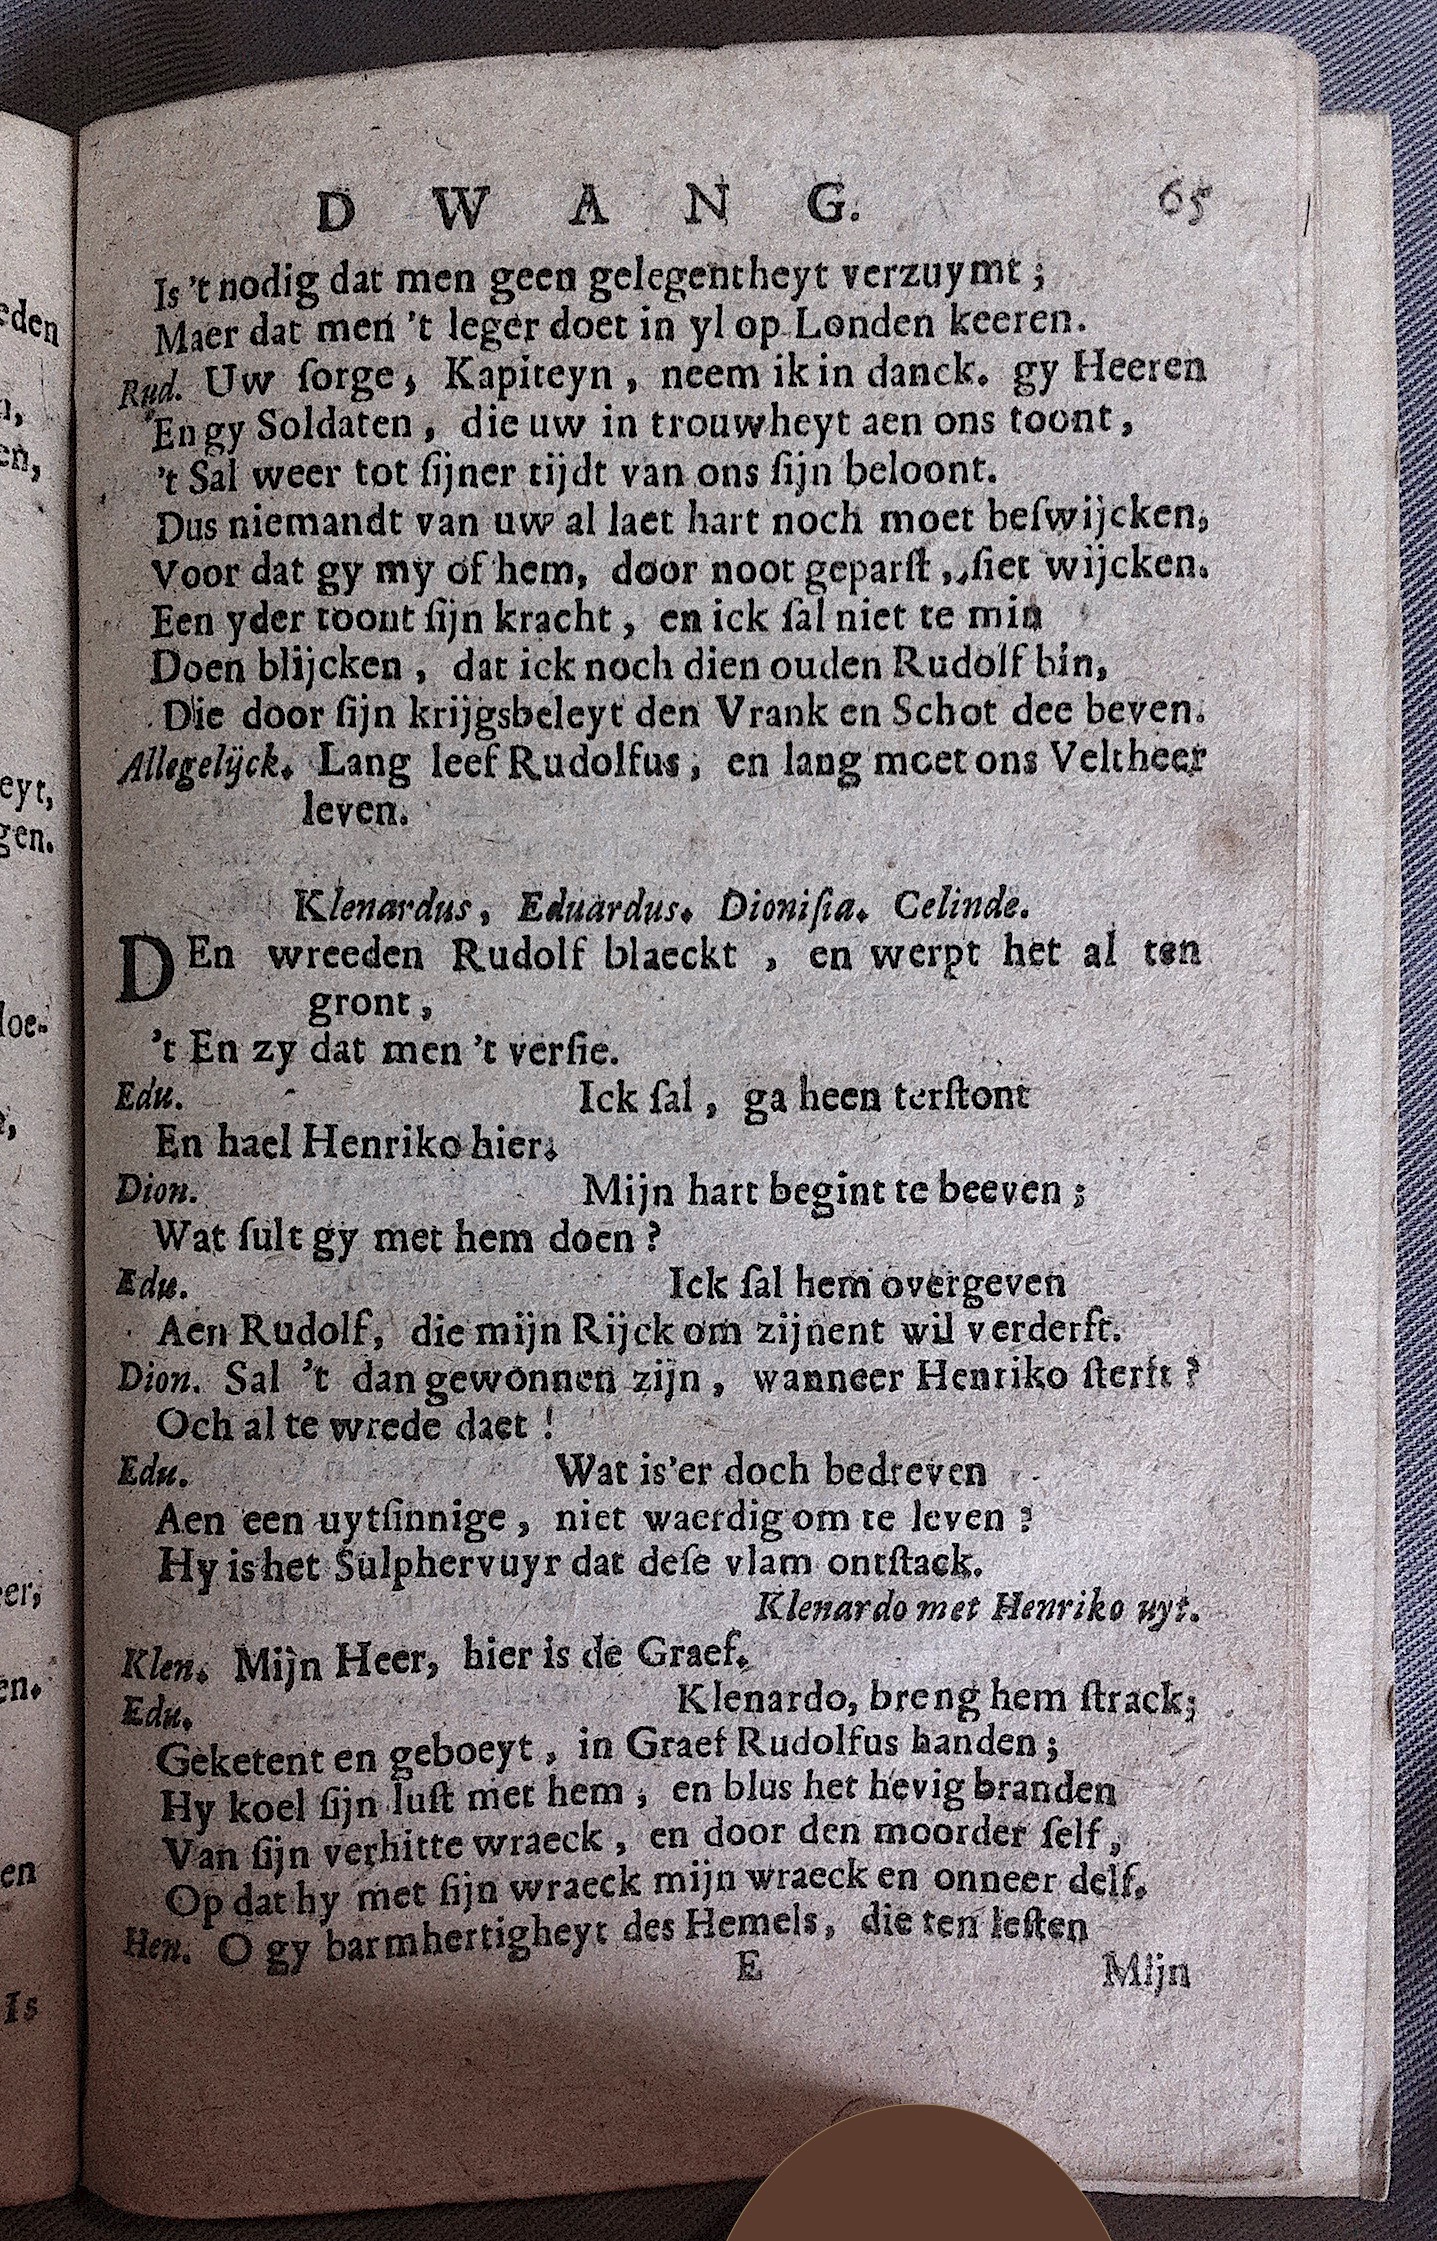 D W A N G. 65
Is 't nodig dat men geen gelegentheyt verzuymt ;
Maer dat men 't leger doet in yl op Londen keeren.
Rud. Uw ſorge, Kapiteyn, neem ik in danck. gy Heeren
En gy Soldaten, die uw in trouwheyt aen ons toont,
't Sal weer tot ſijner tijdt van ons ſijn beloont.
Dus niemandt van uw al laet hart noch moet beſwijcken,
Voor dat gy my of hem, door noot geparſt, ſiet wijcken.
Een yder toont ſijn kracht, en ick ſal niet te min
Doen blijcken, dat ick noch dien ouden Rudolf bin,
Die door ſijn krijgsbeleyt den Vrank en Schot dee beven.
Allegelijck. Lang leef Rudolfus, en lang moet ons Veltheer
leven.
Klenardus, Eduardus. Dioniſia. Celinde.
DEn wreeden Rudolf blaeckt, en werpt het al ten
gront,
't En zy dat men 't verſie.
Edu. Ick ſal, ga heen terſtont
En hael Henriko hier.
Dion. Mijn hart begint te beeven ;
Wat ſult gy met hem doen ?
Edu. Ick ſal hem overgeven
Aen Rudolf, die mijn Rijck om zijnent wil verderft.
Dion. Sal 't dan gewonnen zijn, wanneer Henriko ſterft ?
Och al te wrede daet !
Edu. Wat is'er doch bedreven
Aen een uytſinnige, niet waerdig om te leven ?
Hy is het Sulphervuyr dat deſe vlam ontſtack.
Klenardo met Henriko uyt.
Klen. Mijn Heer, hier is de Graef.
Edu. Klenardo, breng hem ſtrack;
Geketent en geboeyt, in Graef Rudolfus handen ;
Hy koel ſijn luſt met hem, en blus het hevig branden
Van ſijn verhitte wraeck, en door den moorder ſelf,
Op dat hy met ſijn wraeck mijn wraeck en onneer delf.
Hen. O gy barmhertigheyt des Hemels, die ten leſten
E Mijn
eden
en,
eyt,
gen.
loe-
er,
en.
en
Is